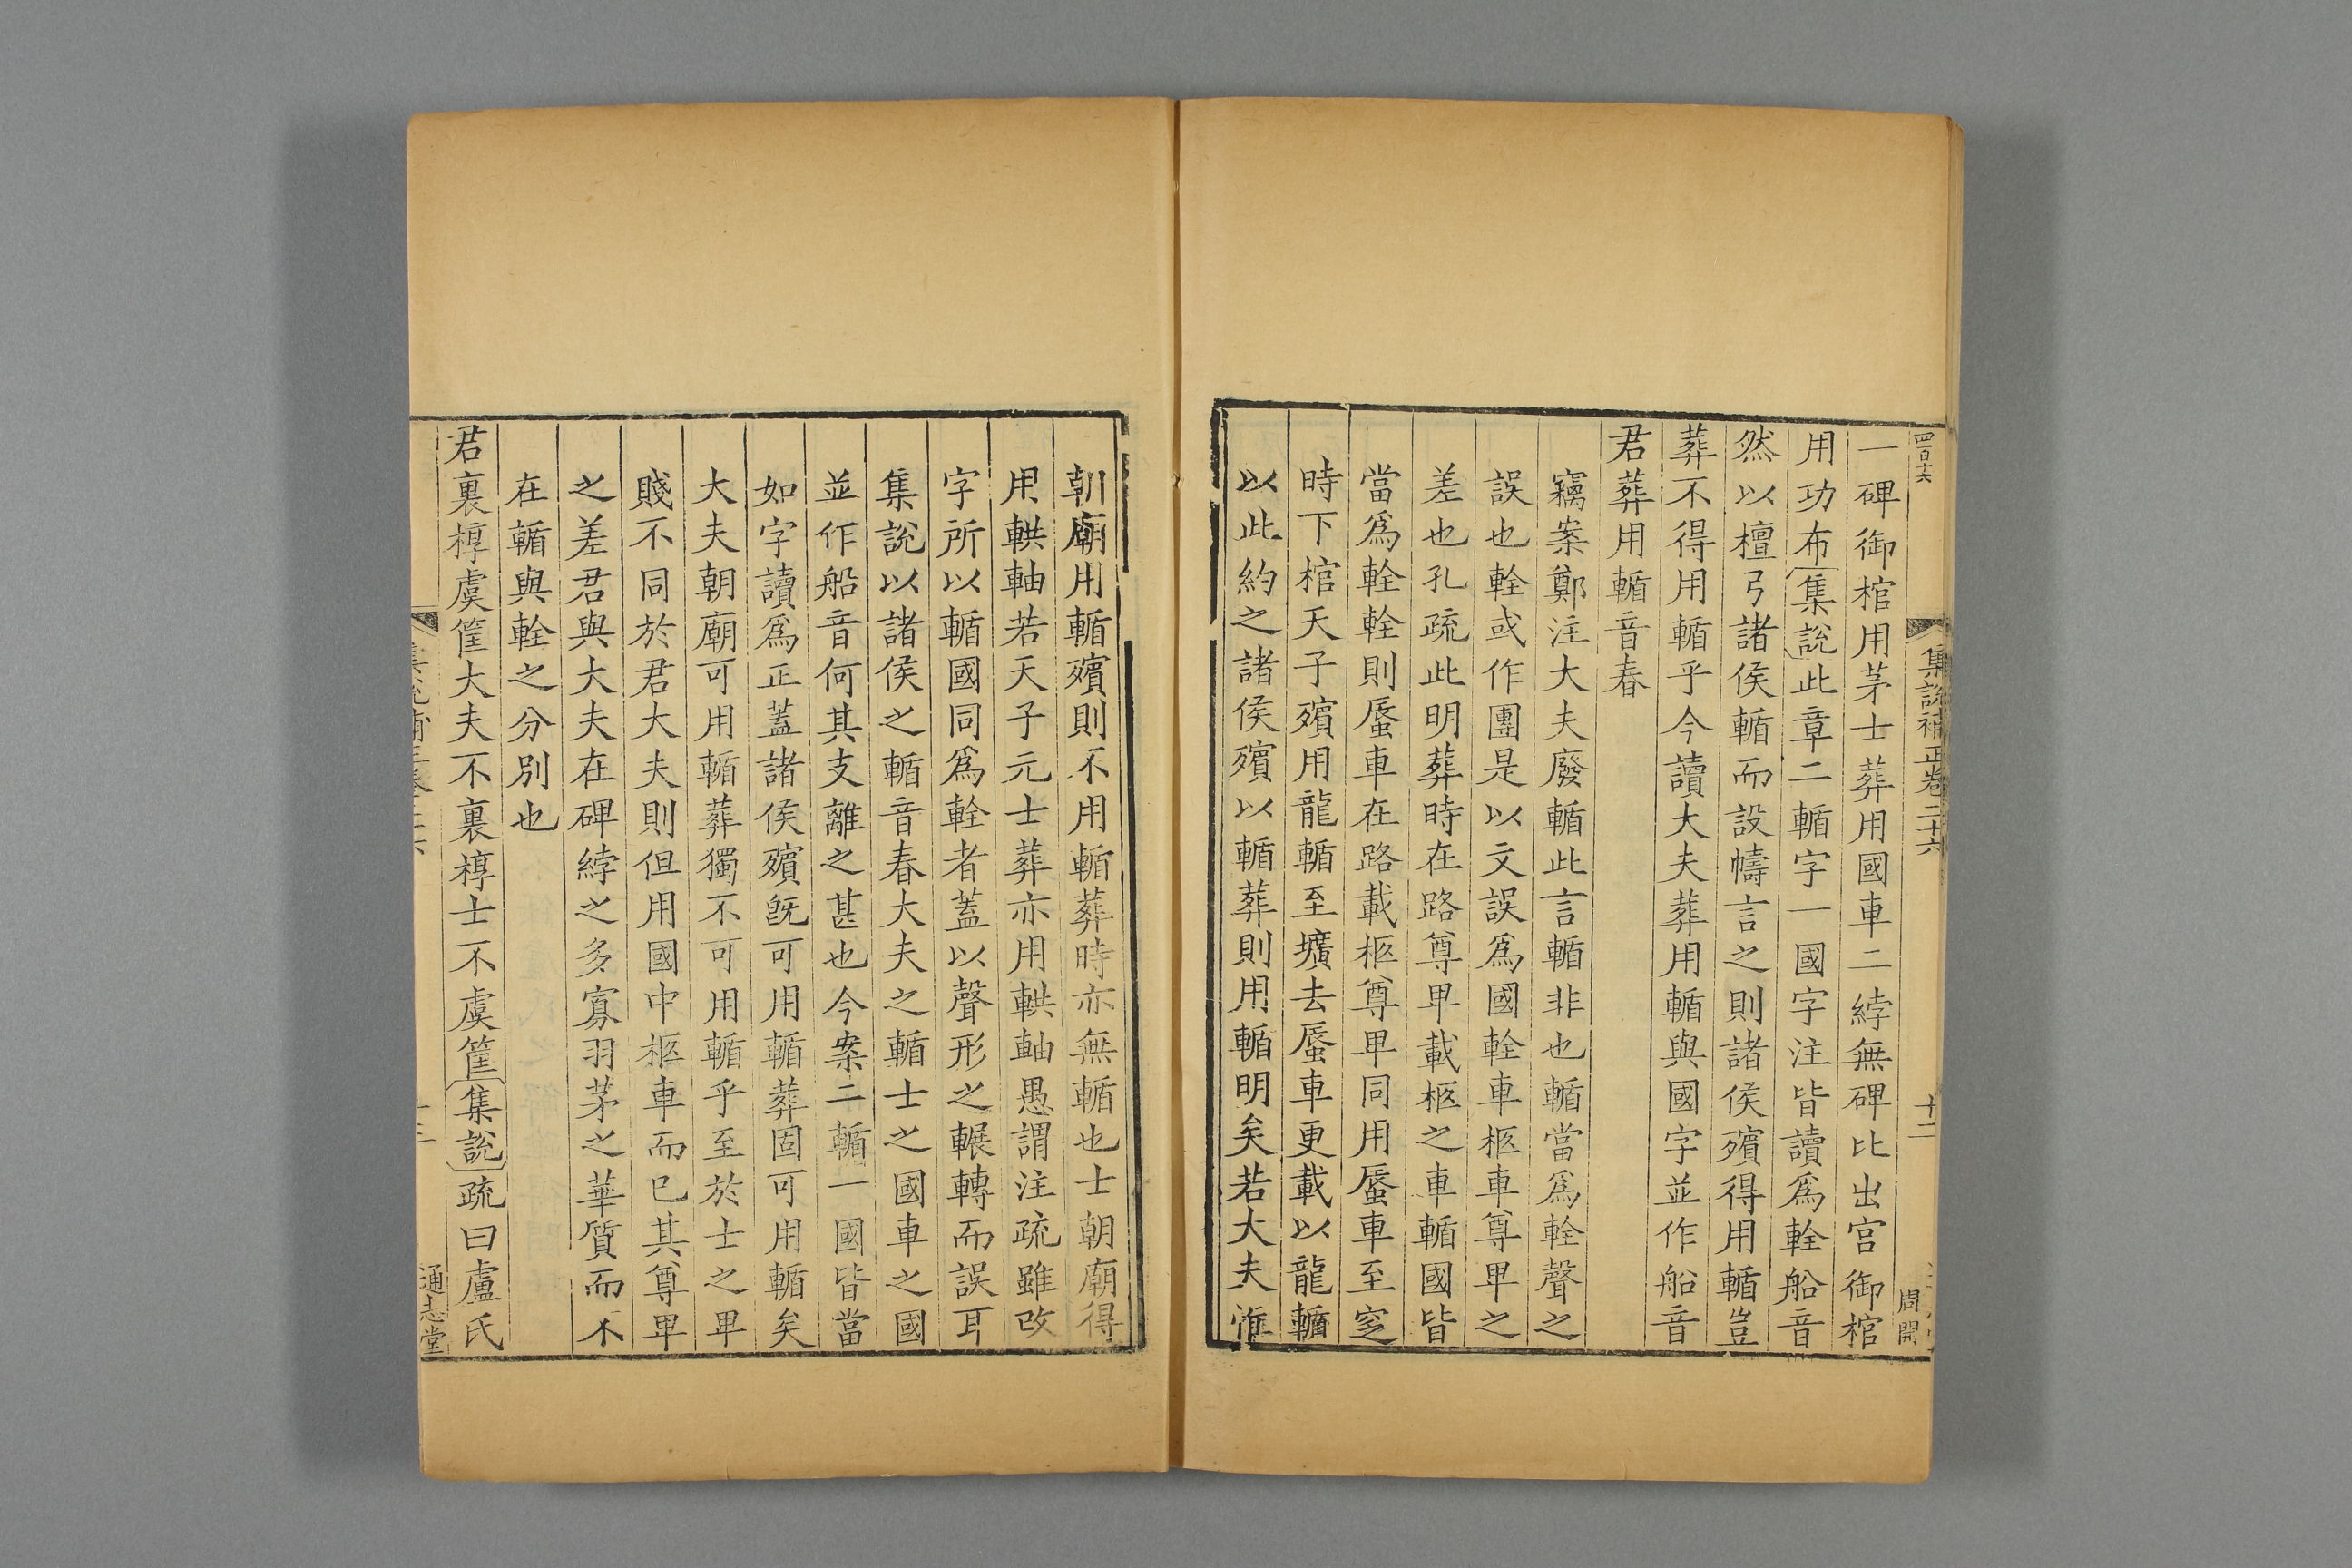 四百十六
集說補正卷二十六
十二
周開
一碑御棺用茅士葬用國車二綍無碑比出宫御棺
用功布集說此章二輴字一國字注皆讀爲輇船音
然以檀弓諸侯輴而設幬言之則諸侯殯得用輴豈
葬不得用輴乎今讀大夫葬用輴與國字並作船音
君葬用輴音春
竊案鄭注大夫廢輴此言輴非也輴當爲輇聲之
誤也輇或作團是以文誤爲國輇車柩車尊卑之
差也孔疏此明葬時在路尊卑載柩之車輴國皆
當爲輇輇則蜃車在路載柩尊卑同用蜃車至窆
時下棺天子殯用龍輴至壙去蜃車更載以龍輴
以此約之諸侯殯以輴葬則用輴明矣若大夫惟
朝廟用輴殯則不用輴葬時亦無輴也士朝廟得
用輁軸若天子元士葬亦用輁軸愚謂注疏雖改
字所以輴國同爲輇者蓋以聲形之輾轉而誤耳
集說以諸侯之輴音春大夫之輴士之國車之國
並作船音何其支離之甚也今案二輴一國皆當
如字讀爲正蓋諸侯殯旣可用輴葬固可用輴矣
大夫朝廟可用輴葬獨不可用輴乎至於士之卑
賤不同於君大夫則但用國中柩車而已其尊卑
之差君與大夫在碑綍之多寡羽茅之華質而不
在輴與輇之分別也
君裏椁虞筐大夫不裏椁士不虞筐集說疏曰盧氏
通志堂